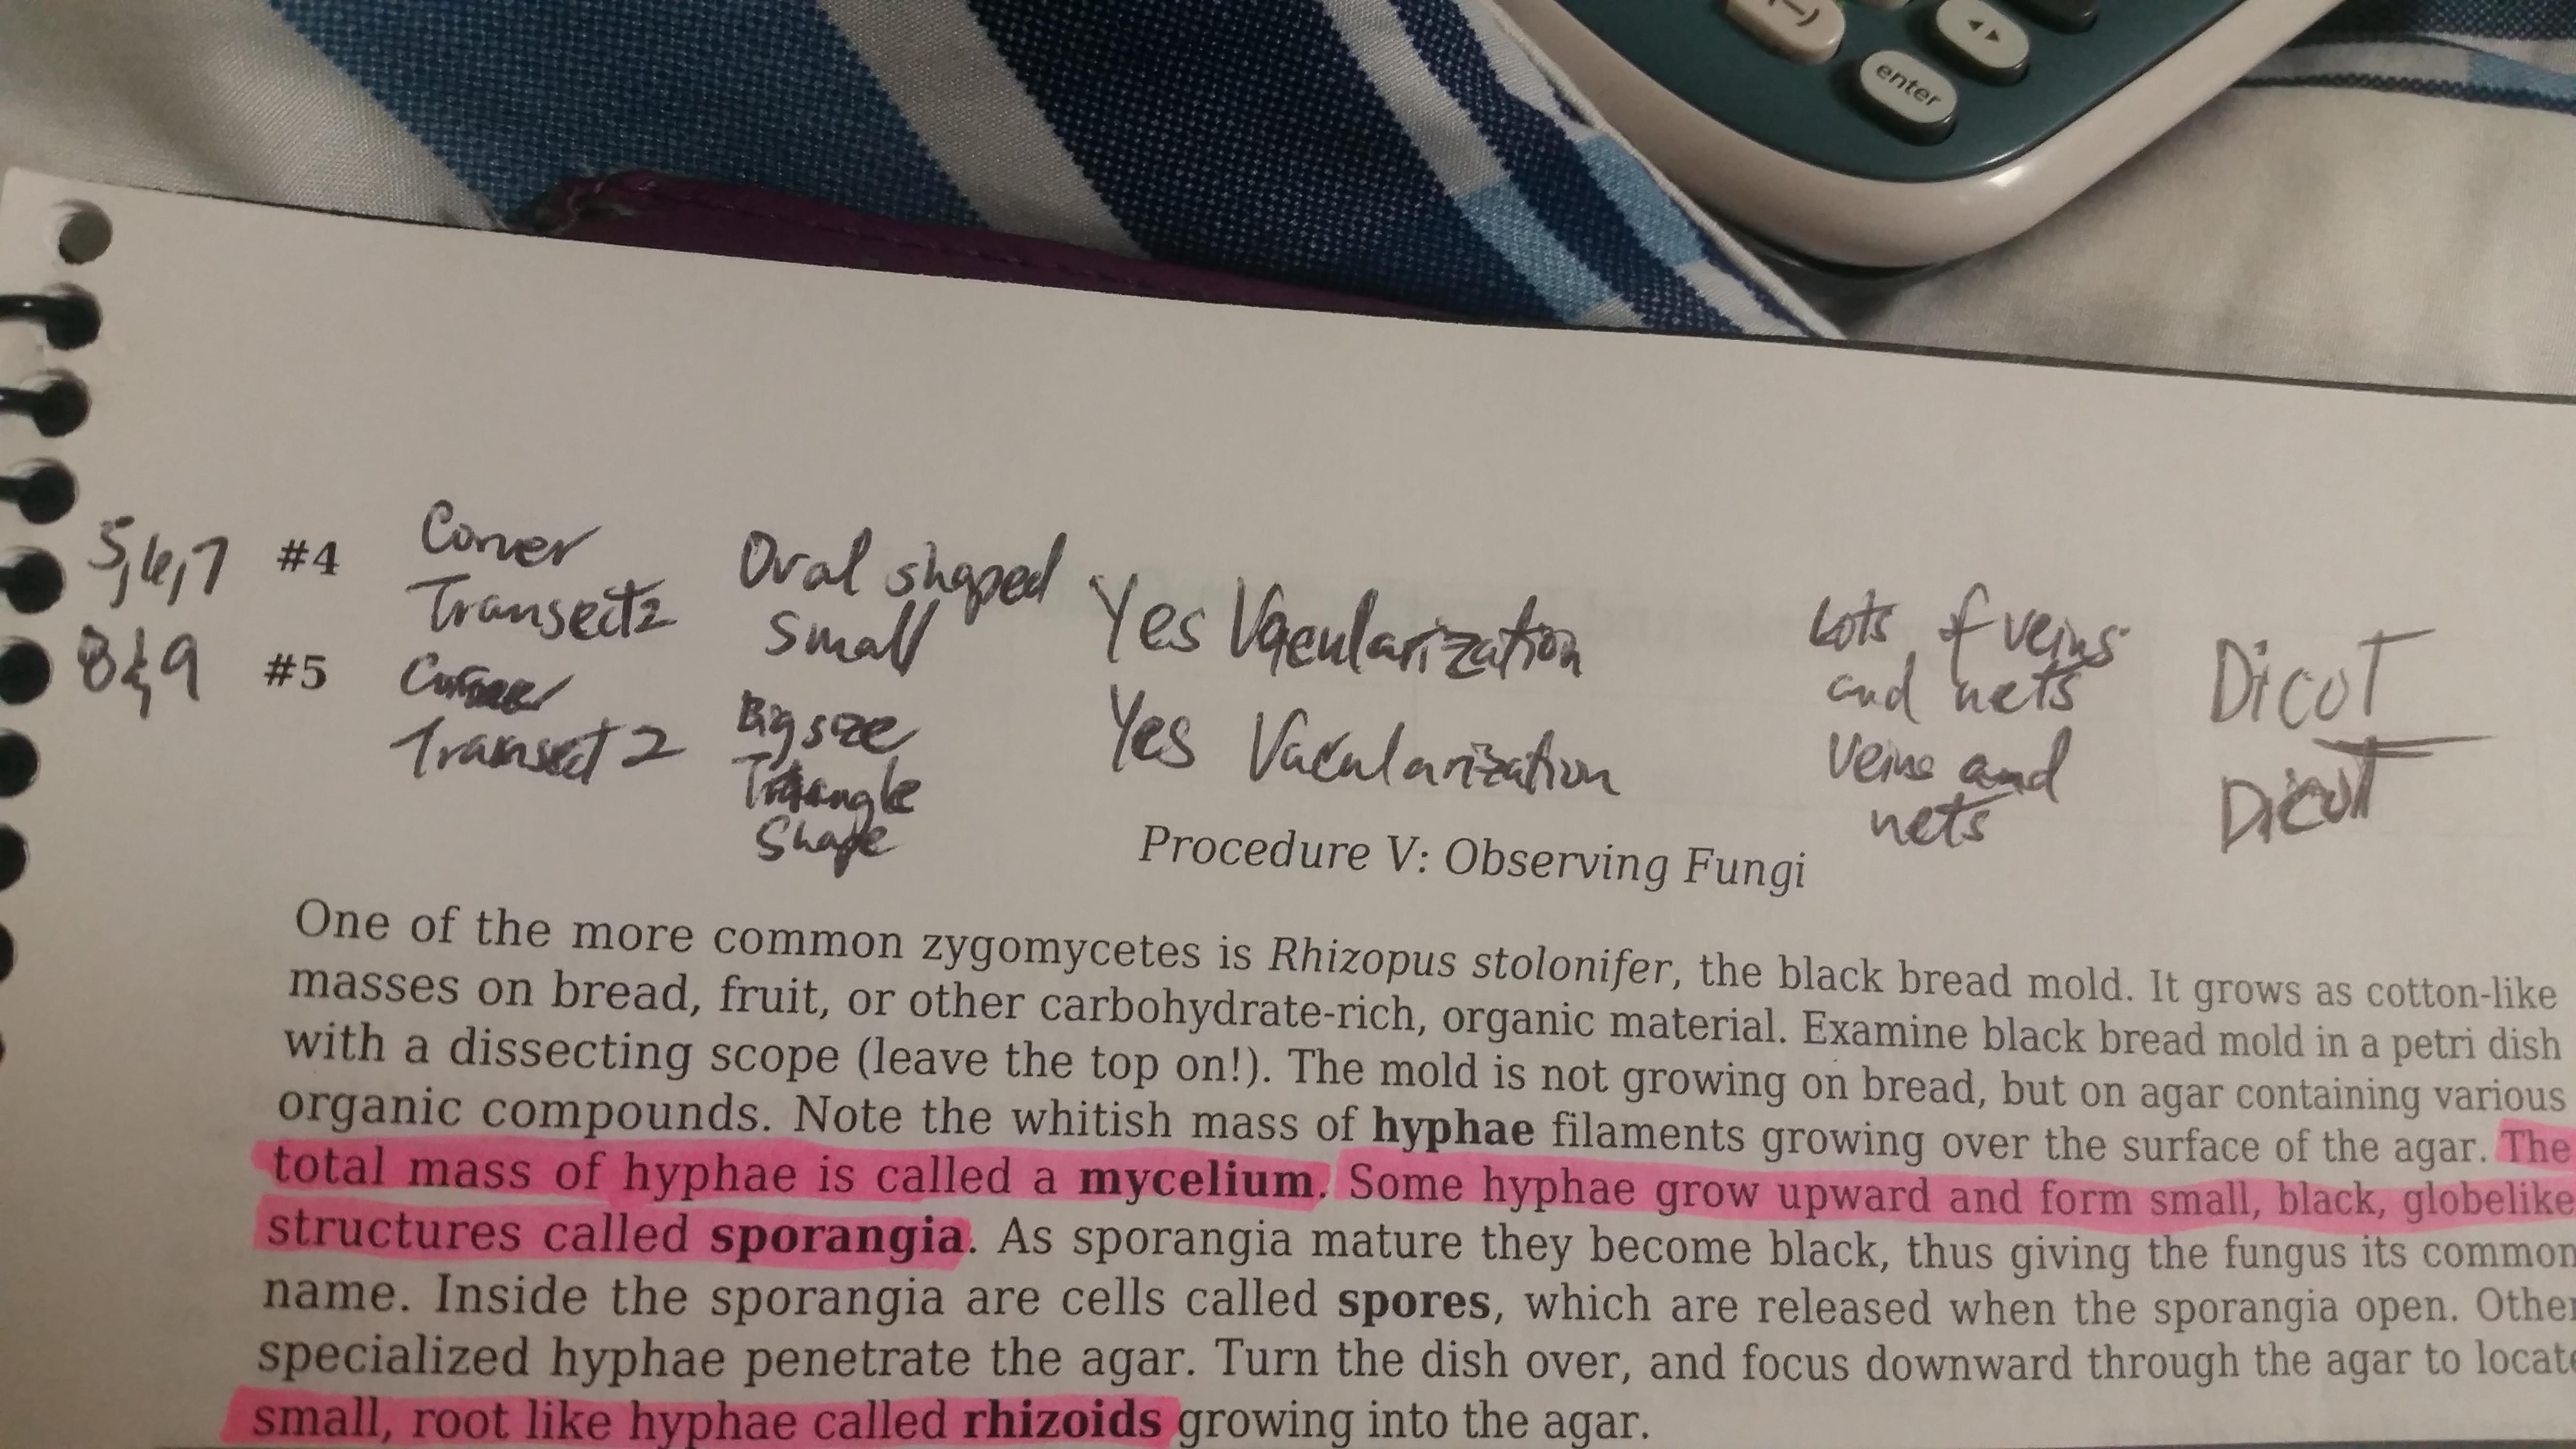 (-)
enter
5,6,7 #4 Corner Transect2 Oval shaped small Yes Vacularization Lots of veins and nets Dicot
8&9 #5 Corner Transect 2 Big size Triangle Shape Yes Vacularization Veins and nets Dicot
Procedure V: Observing Fungi
One of the more common zygomycetes is Rhizopus stolonifer, the black bread mold. It grows as cotton-like
masses on bread, fruit, or other carbohydrate-rich, organic material. Examine black bread mold in a petri dish
with a dissecting scope (leave the top on!). The mold is not growing on bread, but on agar containing various
organic compounds. Note the whitish mass of hyphae filaments growing over the surface of the agar. The
total mass of hyphae is called a mycelium. Some hyphae grow upward and form small, black, globelike
structures called sporangia. As sporangia mature they become black, thus giving the fungus its common
name. Inside the sporangia are cells called spores, which are released when the sporangia open. Other
specialized hyphae penetrate the agar. Turn the dish over, and focus downward through the agar to locate
small, root like hyphae called rhizoids growing into the agar.